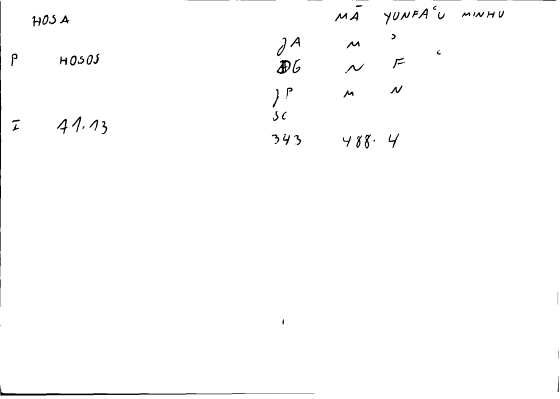 HOSA MĀ YUNFAʿU MINHU
JA M ʾ
P HOSOS DG N F ʿ
JP M N
SC
I 71.13 343 488. 4